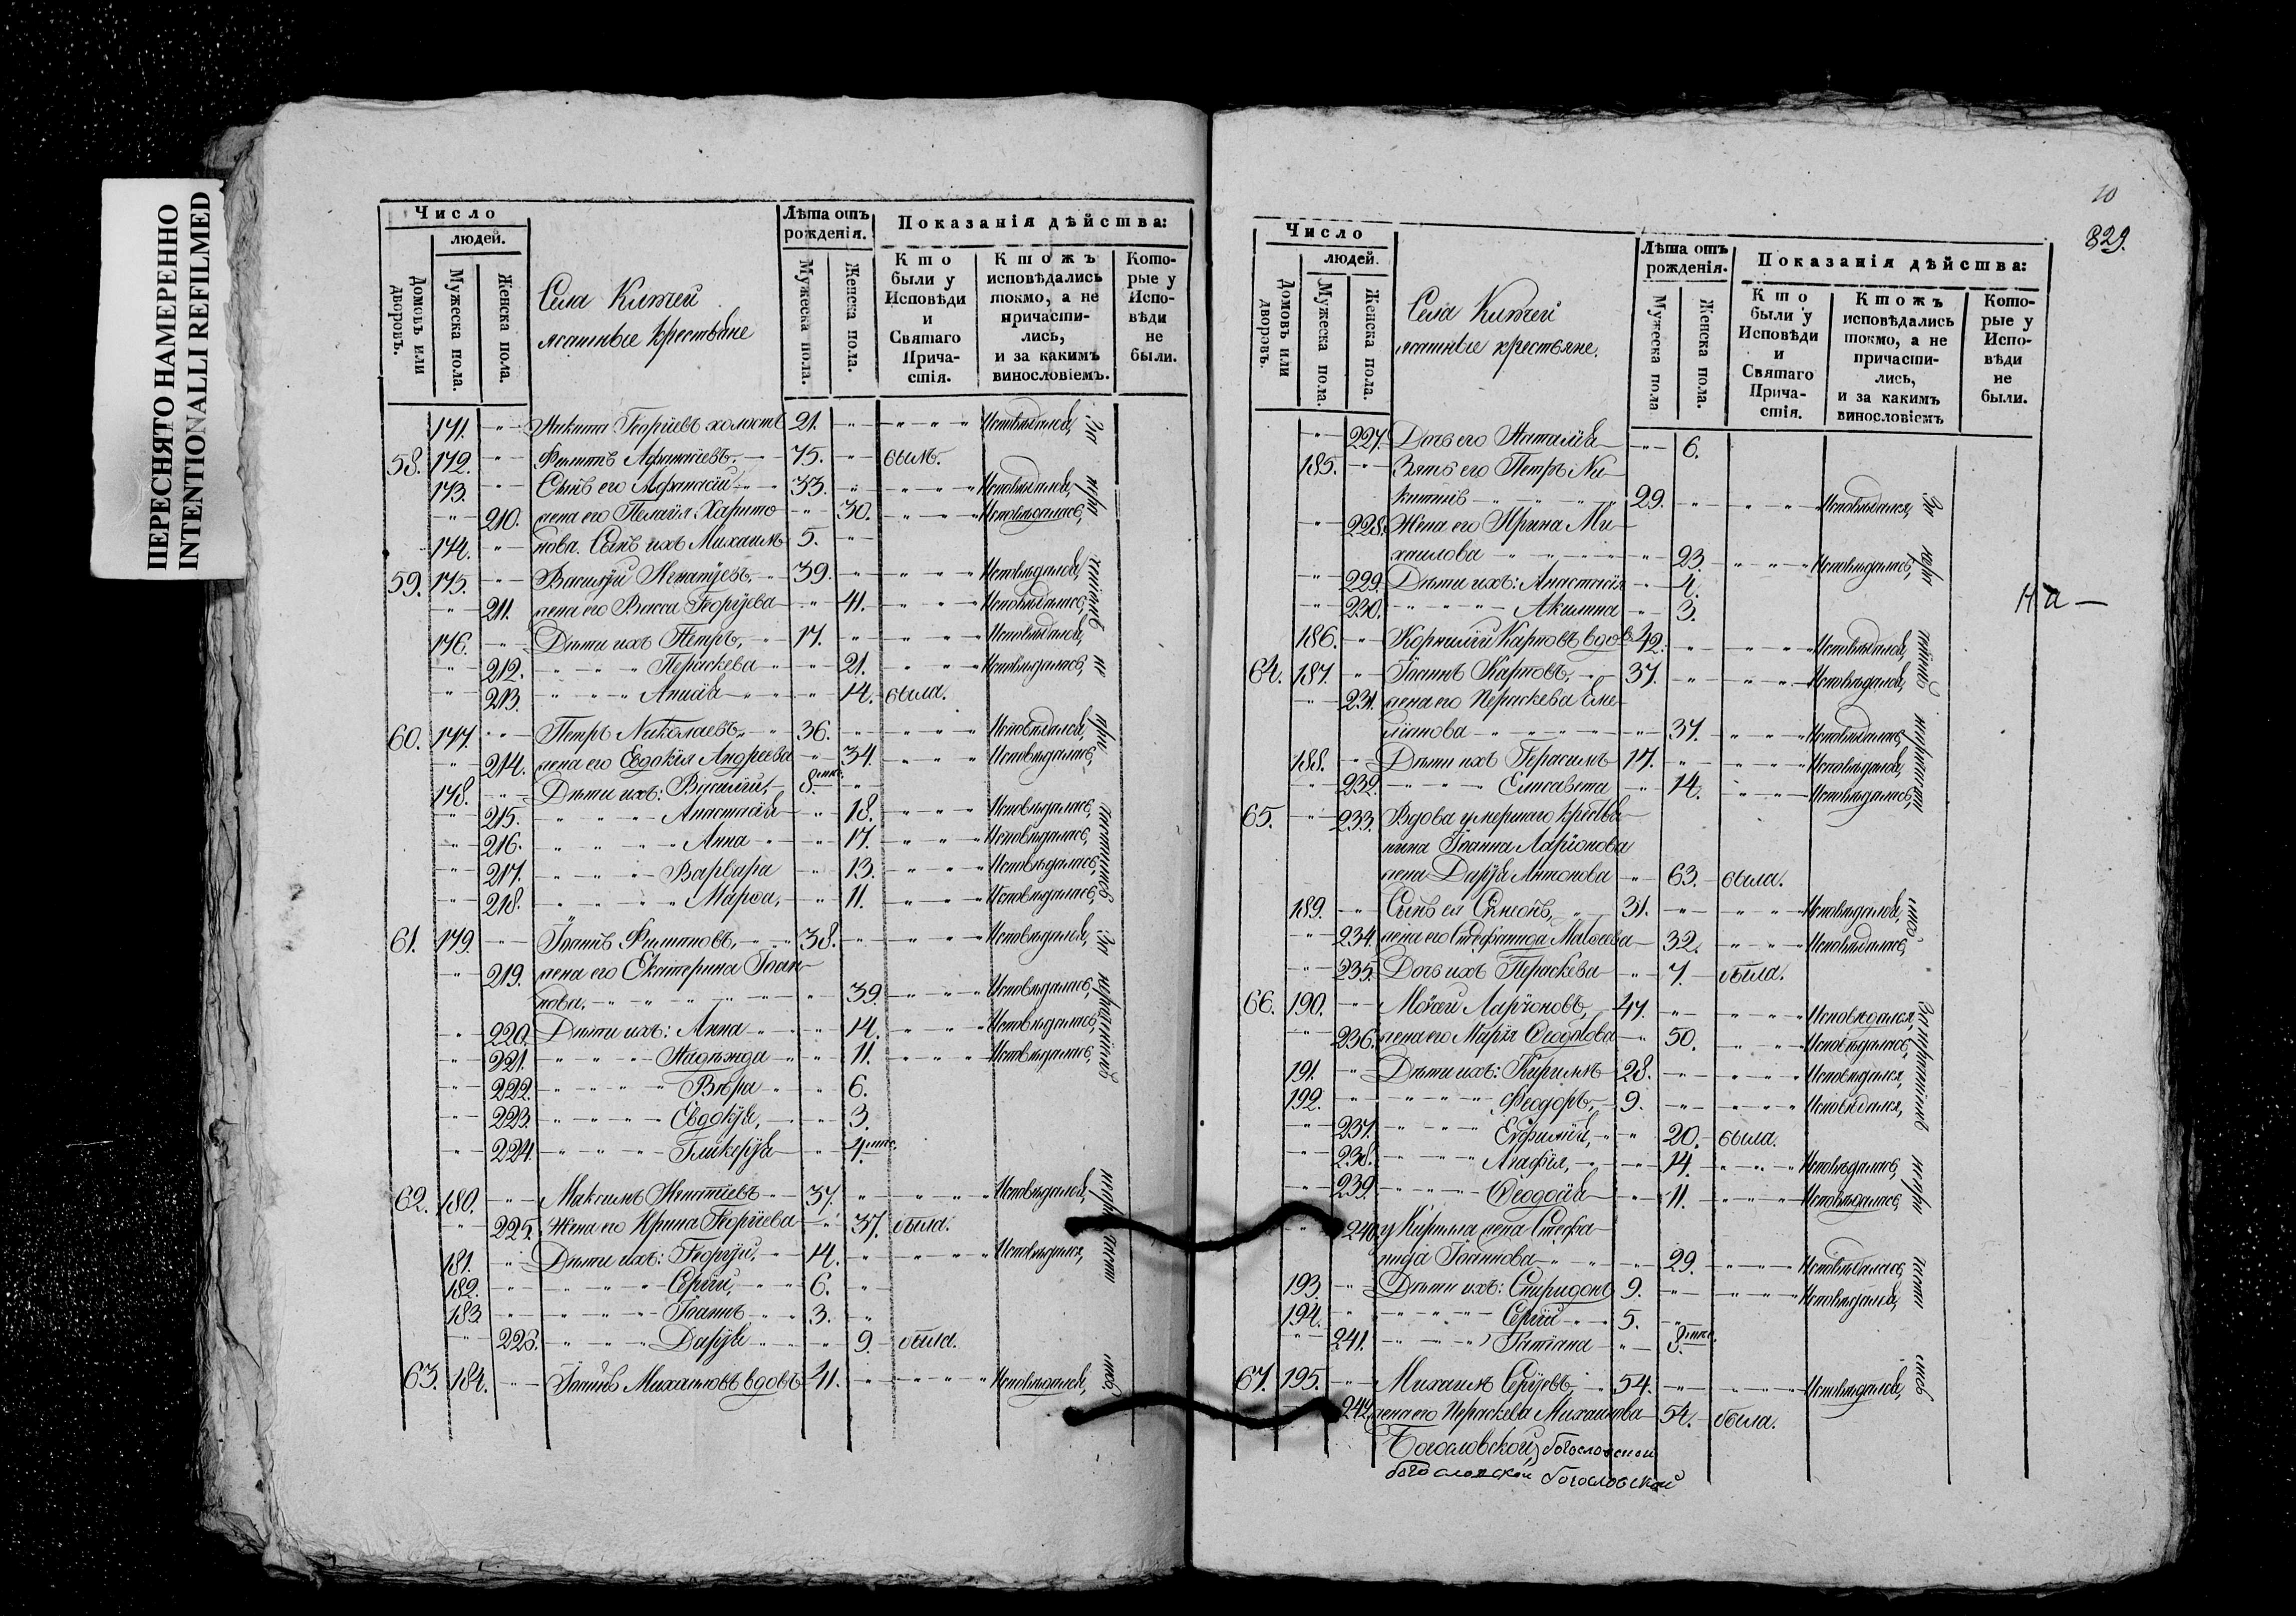 ПЕРЕСНЯТО НАМЕРЕННО
INTENTIONALLI REFILMED
Число
людей.
Домовъ или дворовъ.
Мужеска пола.
Женска пола.
Села Китчей
ясашные крестьяне
Лѣта отъ рожденія.
Мужеска пола.
Женска пола.
Показанія дѣйства:
Кто были у Исповѣди и Святаго Прича-стія.
Ктожъ исповѣдались токмо, а не причасти-лись, и за какимъ винословіемъ.
Кото-рые у Испо-вѣди не были.
171. Никита Георгіевъ холостъ 21. Исповѣдался,
58. 172. Филиппъ Афанасіевъ. 75. былъ.
173. Сынъ его Афанасій 33. Исповѣдался,
210. жена его Пелагія Харито 30. Исповѣдалась,
174. нова. Сынъ ихъ Михаилъ 5.
59. 175. Василій Игнатіевъ. 39. Исповѣдался,
211. жена его Васса Георгіева 41. Исповѣдалась,
176. Дѣти ихъ Петръ, 17. Исповѣдался,
212. Пераскева 21. Исповѣдалась,
213. Анисія 14. была.
60. 177. Петръ Николаевъ 36. Исповѣдался,
214. жена его Евдокія Андреева 34. Исповѣдалась,
178. Дѣти ихъ: Василій, 8.
215. Анастасія 18. Исповѣдалась,
216. Анна 17. Исповѣдалась,
217. Варвара 13. Исповѣдалась,
218. Марѳа, 11. Исповѣдалась,
61. 179. Іоаннъ Филиповъ, 38. Исповѣдался,
219. жена его Екатерина Іоан
нова. 39. Исповѣдалась,
220. Дѣти ихъ: Анна 14. Исповѣдалась,
221. Надежда 11. Исповѣдалась,
222. Вѣра 6.
223. Евдокія, 3.
224. Гликерія
62. 180. Максимъ 37. Исповѣдался,
225. Жена его Ирина Георгіева 37. была.
181. Дѣти ихъ: Георгій, 14. Исповѣдался,
182. Сергій, 6.
183 Іоаннъ 3.
226. Дарія 9. была.
63. 184. Іоаннъ Михаиловъ вдовъ 41. Исповѣдался,
10
829.
Число
людей.
Домовъ или дворовъ.
Мужеска пола.
Женска пола.
Села Китчей
ясашные крестьяне.
Лѣта отъ рожденія.
Мужеска пола
Женска пола.
Показанія дѣйства:
Кто были у Исповѣди и Святаго Прича-стія.
Ктожъ исповѣдались токмо, а не причасти-лись, и за какимъ винословіемъ
Кото-рые у Испо-вѣди не были.
227. Дочь его Наталія 6.
185. Зять его Петръ Ни
китинъ 29. Исповѣдался,
228. Жена его Ирина Ми
хаилова 23. Исповѣдалась,
229. Дѣти ихъ: Анастасія 4.
230. Акилина 3.
На
186. Корнилій Карповъ вдовъ 42. Исповѣдался,
64. 187. Іоаннъ Карповъ, 37. Исповѣдался,
231. жена его Пераскева Еме
ліанова 37. Исповѣдалась,
188. Дѣти ихъ Герасимъ 17. Исповѣдался,
232. Елисавета 14. Исповѣдалась,
65. 233. Вдова умершаго крестья
нина Іоанна Ларіонова
жена Дарія Антонова 63. была.
189. Сынъ ея Симеонъ, 31. Исповѣдался,
234. жена его Стефанида Маѳеева 32. Исповѣдалась,
235. Дочь ихъ Пераскева 7. была.
66. 190. Моѵсей Ларіоновъ, 47. Исповѣдался,
236. жена его Марія Ѳеодотова 50. Исповѣдалась,
191. Дѣти ихъ: Кириллъ 28. Исповѣдался,
192. Феодоръ, 9. Исповѣдался,
237. Евфимія, 20. была.
238. Агафія, 14. Исповѣдалась,
239. Ѳеодосія 11. Исповѣдалась,
240. у Кирилла жена Стефа
нида Іоаннова 29. Исповѣдалась,
193. Дѣти ихъ: Спиридонъ 9. Исповѣдался,
194. Сергій 5.
241. Татіана
67. 195. Михаилъ Сергіевъ, 54. Исповѣдался,
242. жена его Пераскева Михаилова 54. была.
Богословской, богословской
богословской богословской